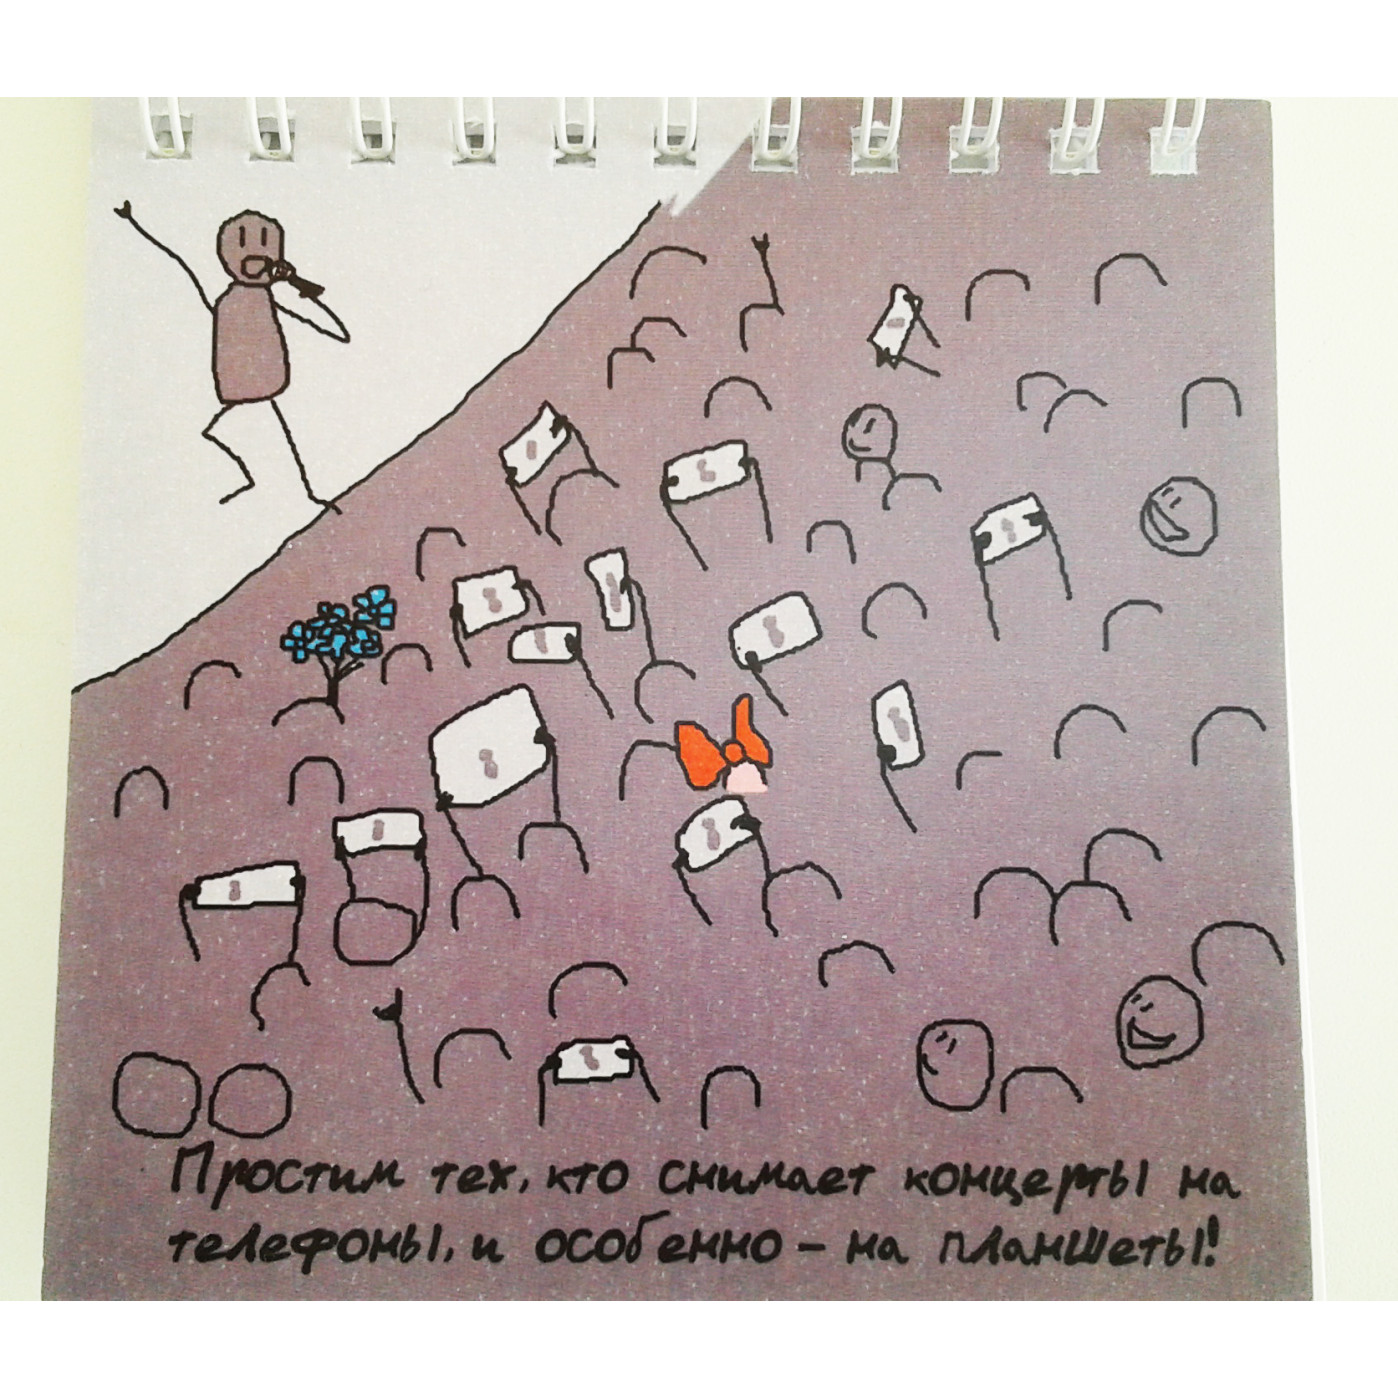 Простим тех, кто снимает концерты на
телефоны, и особенно – на планшеты!